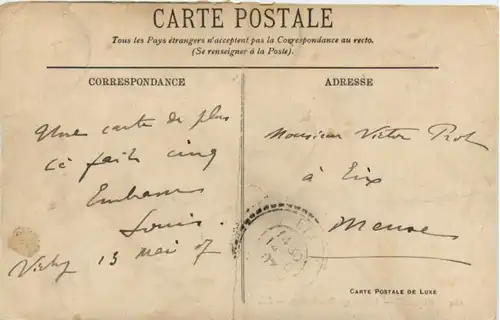 CARTE POSTALE
Tous les Pays étrangers n'acceptent pas la Correspondance au recto.
(Se renseigner à la Poste).
CORRESPONDANCE
Une carte de plus
ça fait cinq
Embrasse
Louis.
Vichy 13 mai 07
ADRESSE
Monsieur Victor
à Eix
Meuse
CARTE POSTALE DE LUXE